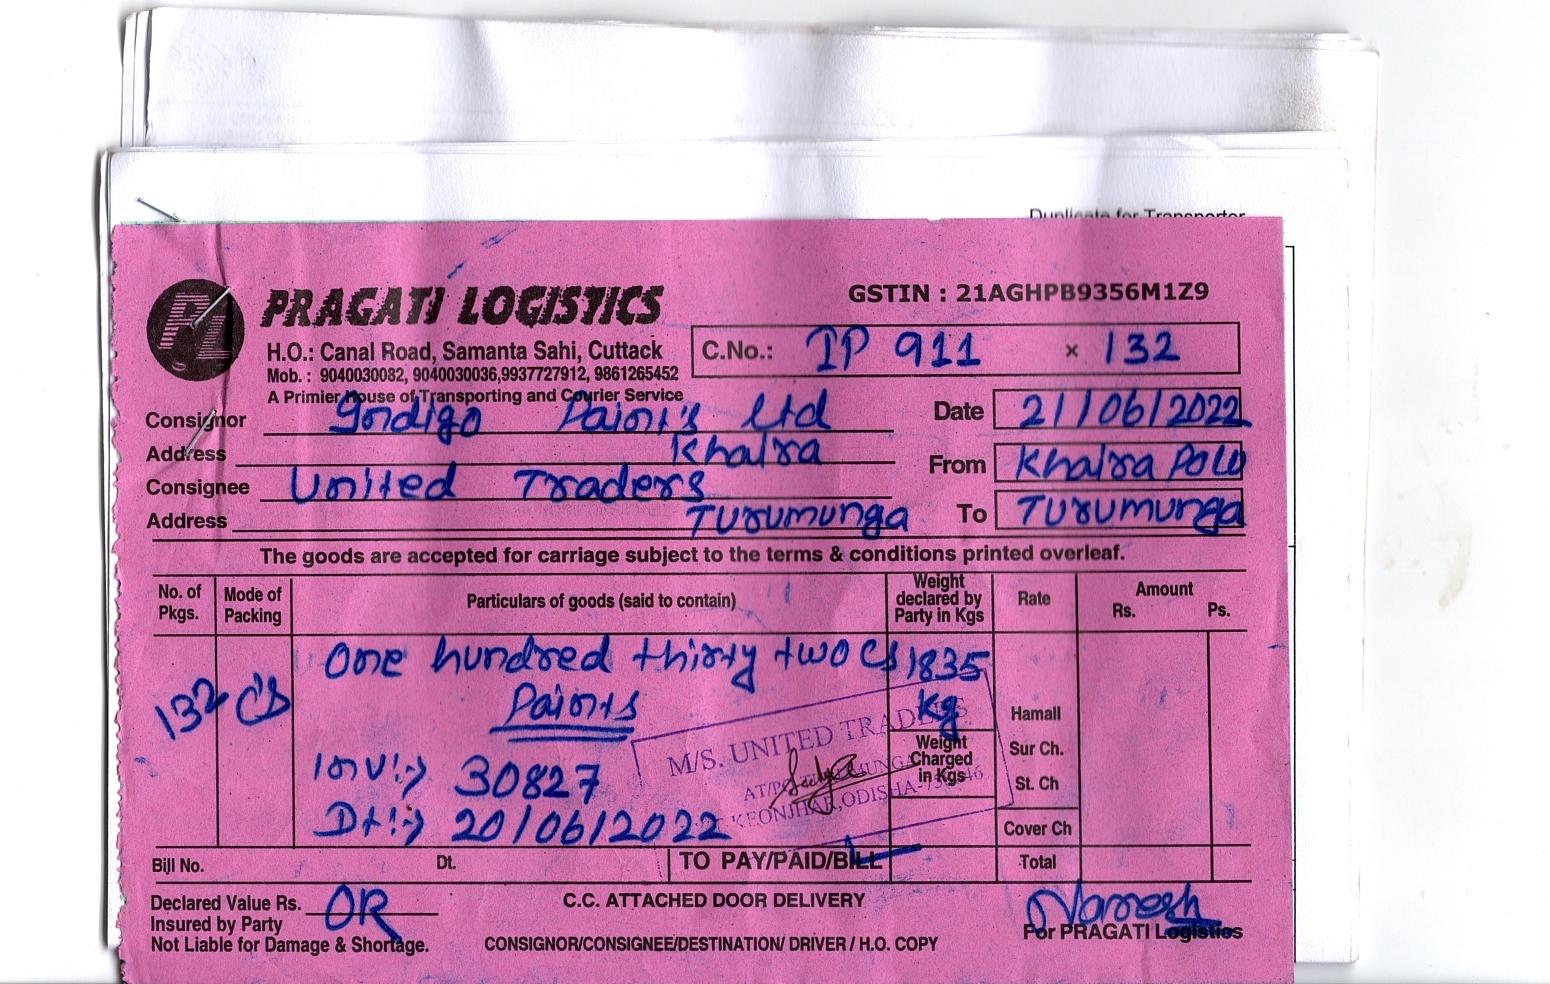 Duplicate for Transporter
PL
PRAGATI LOGISTICS
GSTIN : 21AGHPB9356M1Z9
H.O.: Canal Road, Samanta Sahi, Cuttack
Mob. : 9040030082, 9040030036,9937727912, 9861265452
A Primier House of Transporting and Courier Service
C.No.: IP 911 × 132
Consignor Indigo Paint's Ltd
Date 21/06/2022
Address Khaira
From Khaira Polo
Consignee United Traders
Address Turumunga
To Turumunga
The goods are accepted for carriage subject to the terms & conditions printed overleaf.
No. of Pkgs.
Mode of Packing
Particulars of goods (said to contain)
Weight declared by Party in Kgs
Rate
Amount
Rs. Ps.
132 C/S
One hundred thirty two C/S
Paints
1835 kg
Inv:→ 30827
Dt:→ 20/06/2022
M/S. UNITED TRADERS
KEONJHAR,ODISHA
Weight Charged in Kgs
Hamall
Sur Ch.
St. Ch
Cover Ch
Bill No. Dt.
TO PAY/PAID/BILL
Total
Declared Value Rs. OR
Insured by Party
Not Liable for Damage & Shortage.
C.C. ATTACHED DOOR DELIVERY
CONSIGNOR/CONSIGNEE/DESTINATION/ DRIVER / H.O. COPY
Naresh
For PRAGATI Logistics